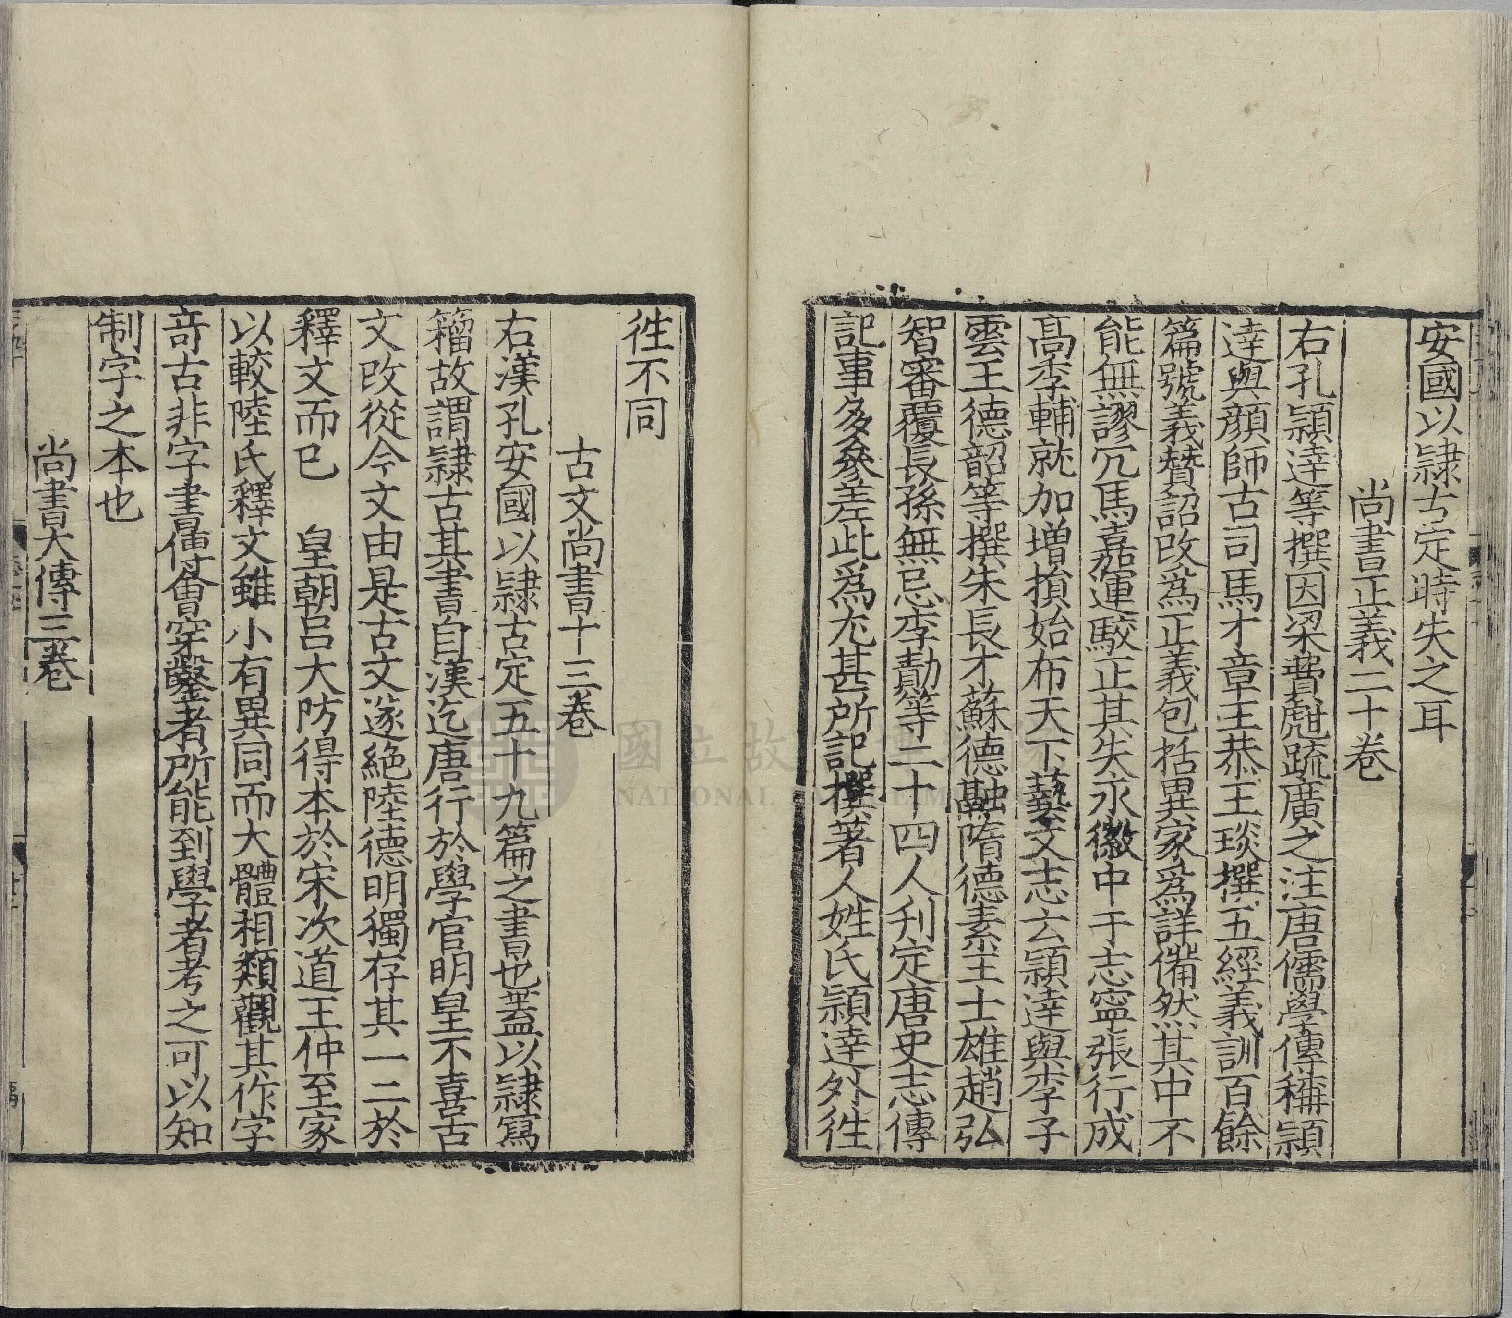 安國以隷古定時失之耳
尚書正義二十卷
右孔頴逹等撰因梁費甝疏廣之注唐儒學傳稱頴
逹與顔師古司馬才章王恭王琰撰五經義訓百餘
篇號義贊詔改為正義包括異家爲詳備然其中不
能無謬冗馬嘉運駁正其失永徽中于志寧張行成
髙季輔就加増損始布天下藝文志云頴逹與李子
雲王德韶等撰朱長才蘇德融隋德素王士雄趙弘
智審覆長孫無忌李勣等二十四人刋定唐史志傳
記事多參差此爲尤甚所記撰著人姓氏頴逹外徃
徃不同
古文尚書十三卷
右漢孔安國以隷古定五十九篇之書也蓋以隷寫
籀故謂隷古其書自漢迄唐行於學官明皇不喜古
文改從今文由是古文遂絶陸德明獨存其一二於
釋文而已 皇朝呂大防得本於宋次道王仲至家
以較陸氏釋文雖小有異同而大體相類觀其作字
竒古非字書傅會穿鑿者所能到學者考之可以知
制字之本也
尚書大傳三卷
國立故
NATIONAL